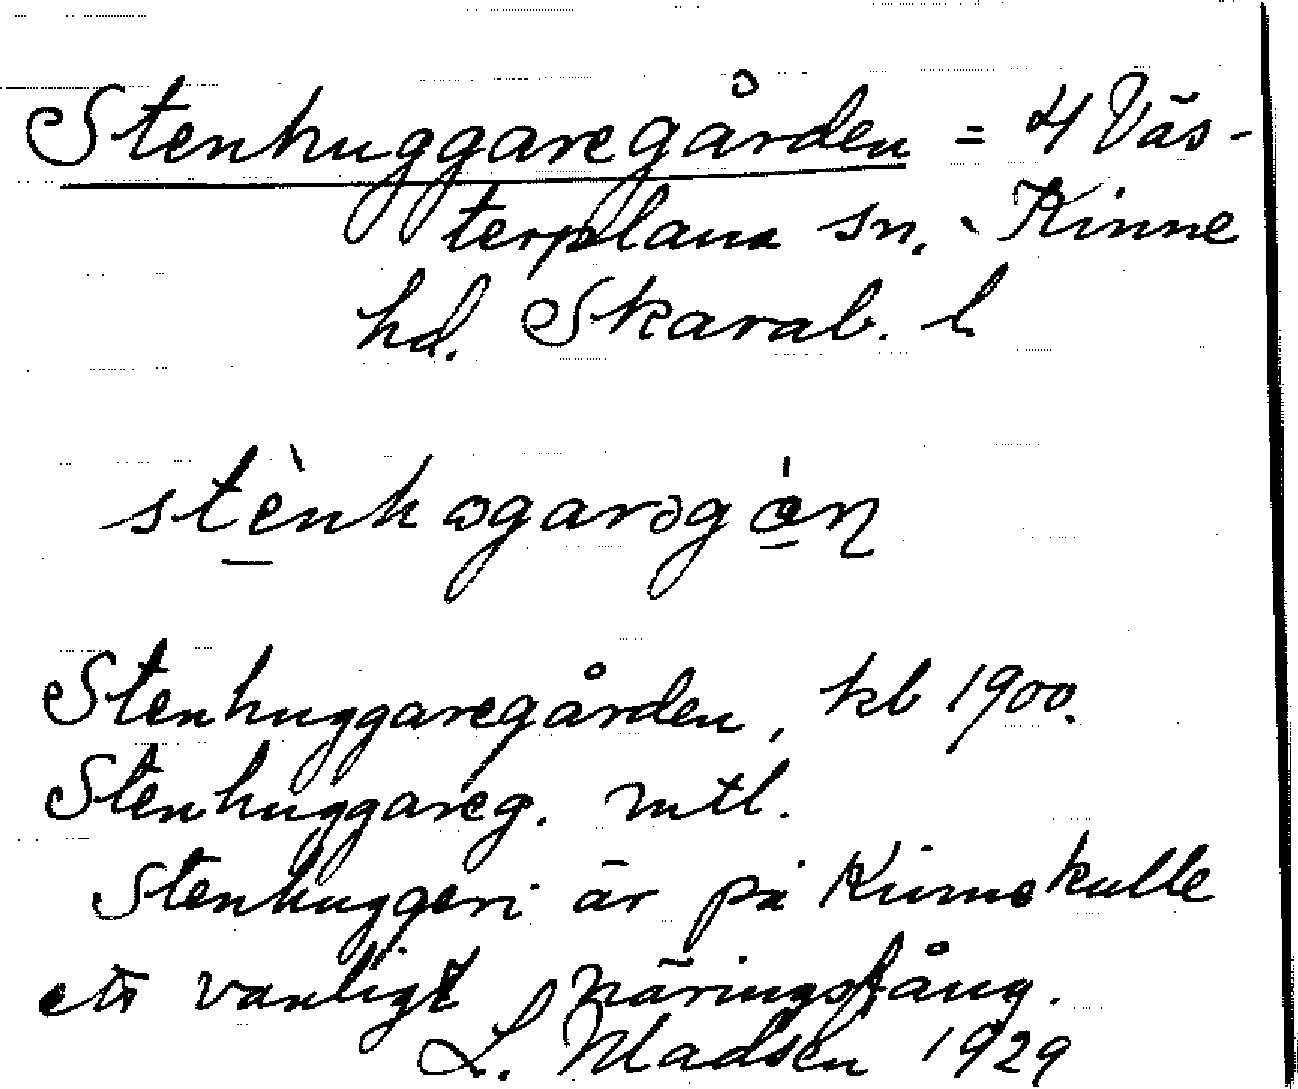 Stenhuggaregården = 4 Väs-
terplana sn. Kinne
hd. Skarab. l
stènhɷgarəgɑ̇ɳ
Stenhuggaregården, kb 1900.
Stenhuggareg. mtl.
Stenhuggeri är på Kinnekulle
ett vanligt näringsfång.
L. Madsén 1929